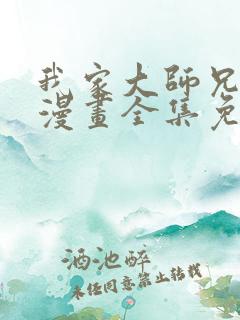 我家大師兄
漫畫全集免
酒池醉
未经同意禁止转载